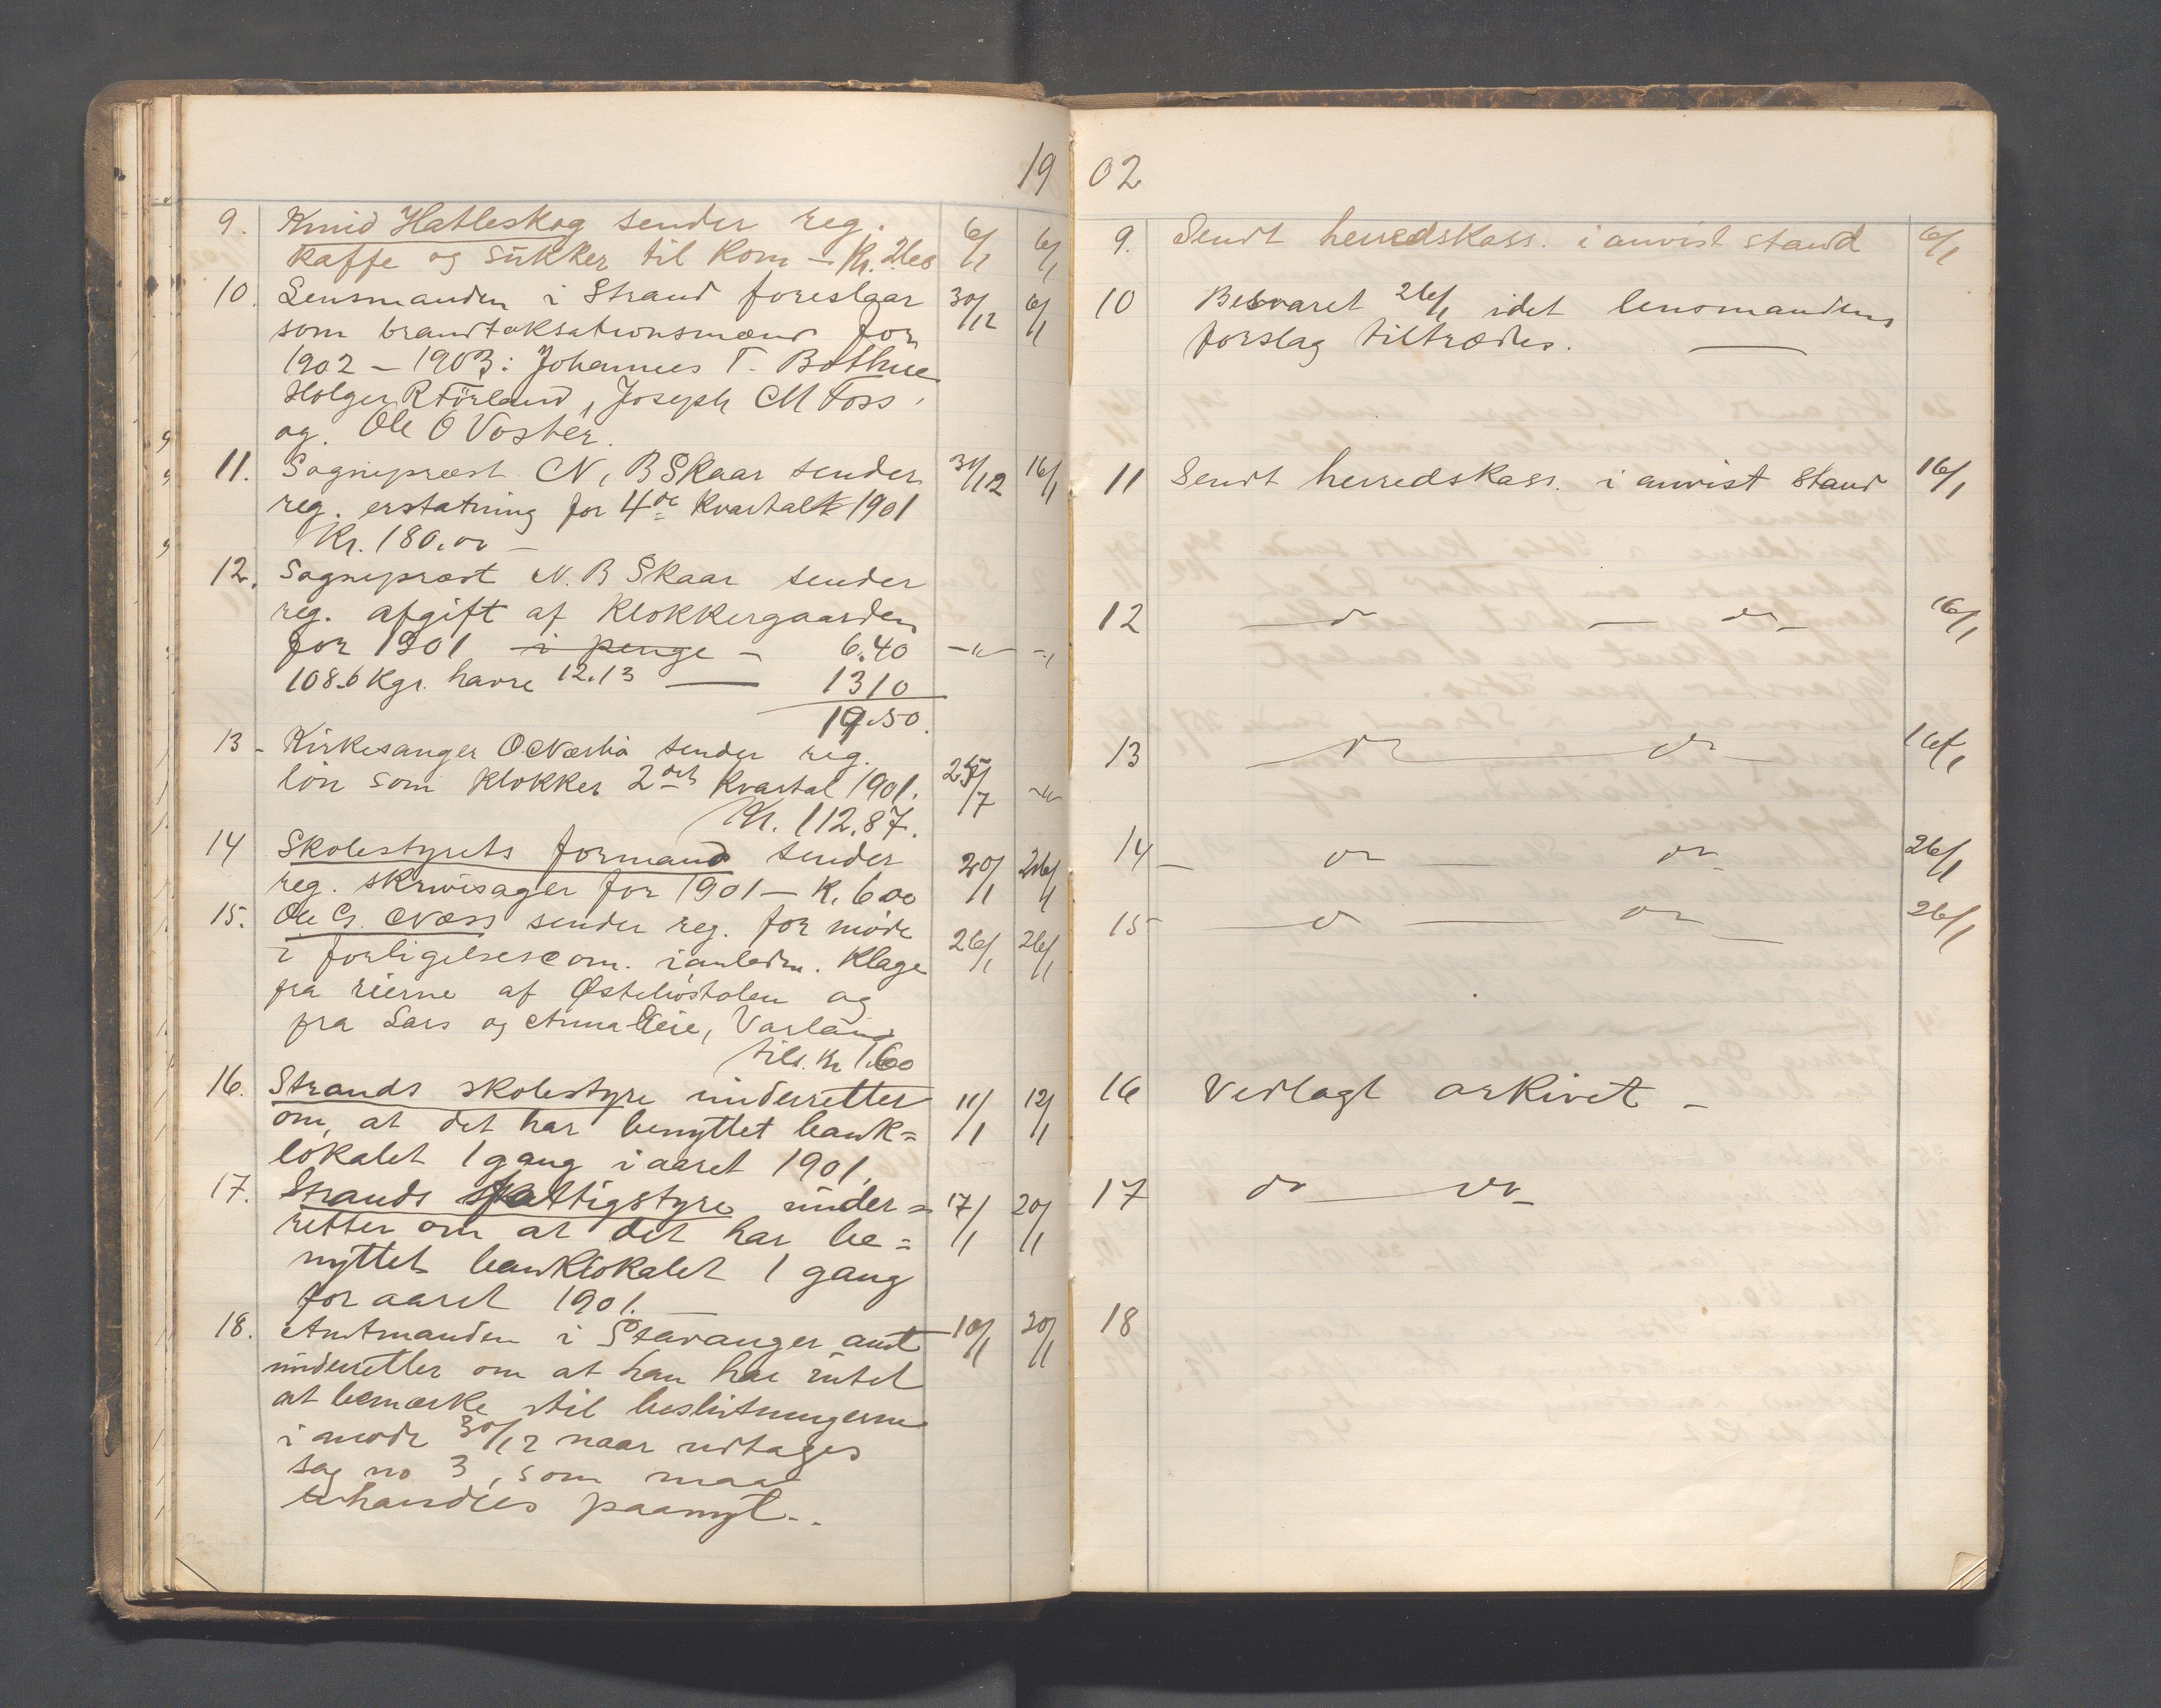 19 02
9. Knud Hatleskog sender reg. 6/1 6/1
kaffe og sukker til kom – Kr. 2.60
10. Lensmanden i Strand foreslaar 30/12 6/1
som brandtaksationsmænd for
1902 – 1903: Johannes T. Bøthue
Holger R Førland, Joseph M Foss,
og. Ole O Voster.
11. Sogneprest N. B Skaar sender 31/12 16/1
reg. erstatning for 4de kvartalt 1901
Kr. 180.00 –
12. Sogneprest N. B Skaar sender
reg. afgift af klokkergaarden
for 1901 i penge – 6.40 –"– –"–
108.6 Kgr. havre 12.13 — 13 10
19.50.
13 - Kirkesanger O. Nærbø sender reg.
løn som klokker 2det kvartal 1901. 25/7 –"–
Kr. 112.87.
14 Skolestyrets formand sender 20/1 26/1
reg. skrivesager for 1901 – K. 6.00
15. Ole G. Næss sender reg. for møde 26/1 26/1
i forligelsescom. i anledn. klage
fra eierne af Østehusstølen og
fra Lars og Anna Leie, Vorland
tils. kr 1.60
16. Strands skolestyre underretter 11/1 12/1
om, at det har benyttet bank=
lokalet 1 gang i aaret 1901.
17. Strands fattigstyre under= 17/1 20/1
retter om at det har be=
nyttet banklokalet 1 gang
for aaret 1901. —
18. Amtmanden i Stavanger amt 18/1 20/1
underretter om at han har intet
at bemærke til beslutningerne
i møde 30/12 naar undtages
sag no 3, som maa
behandles paanyt. .
9. Sendt herredskass. i anvist stand 6/1
10 Besvaret 26/1 idet lensmandens
forslag tiltrædes. —
11 Sendt herredskass. i anvist stand 16/1
12 — do — do — 16/1
13 — do — do — 16/1
14 – do — do – 26/1
15 — do — do — 26/1
16 Vedlagt arkivet –
17 do — do –
18